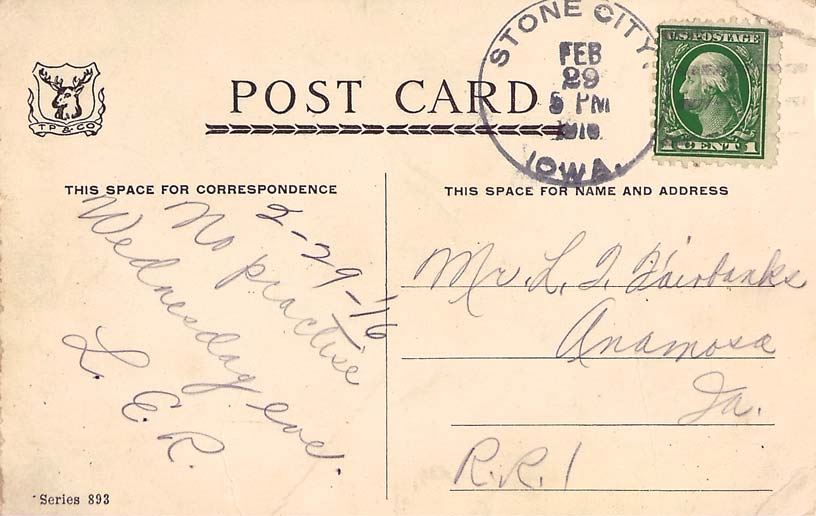 STONE CITY,
FEB
29
5 PM
1916
IOWA.
U.S. POSTAGE
1 CENT 1
T P & CO
POST CARD
THIS SPACE FOR CORRESPONDENCE
THIS SPACE FOR NAME AND ADDRESS
2-29-16
No practise
Wednesday eve.
L. E. R.
Mr. L. T. Fairbanks
Anamosa
Ia.
R.R. 1
Series 893